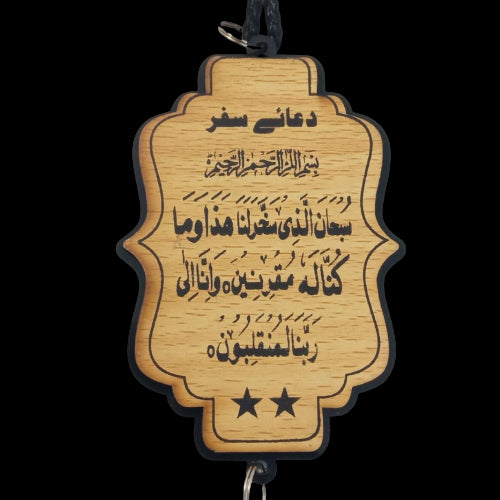 دعائے سفر
بِسْمِ اللّٰهِ الرَّحْمٰنِ الرَّحِيْمِ
سُبْحَانَ الَّذِیْ سَخَّرَ لَنَا هَذَا وَمَا
كُنَّا لَهٗ مُقْرِنِيْنَ ○ وَاِنَّا اِلٰى
رَبِّنَا لَمُنْقَلِبُوْنَ ○